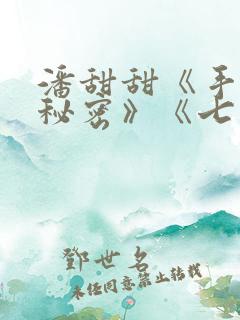 潘甜甜《手
秘密》《七
鄧世名
未经同意禁止转载